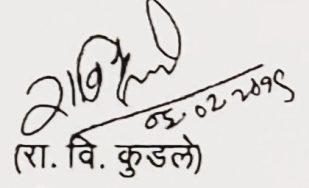 ०६.०२.२०१९
(रा. वि. कुडले)